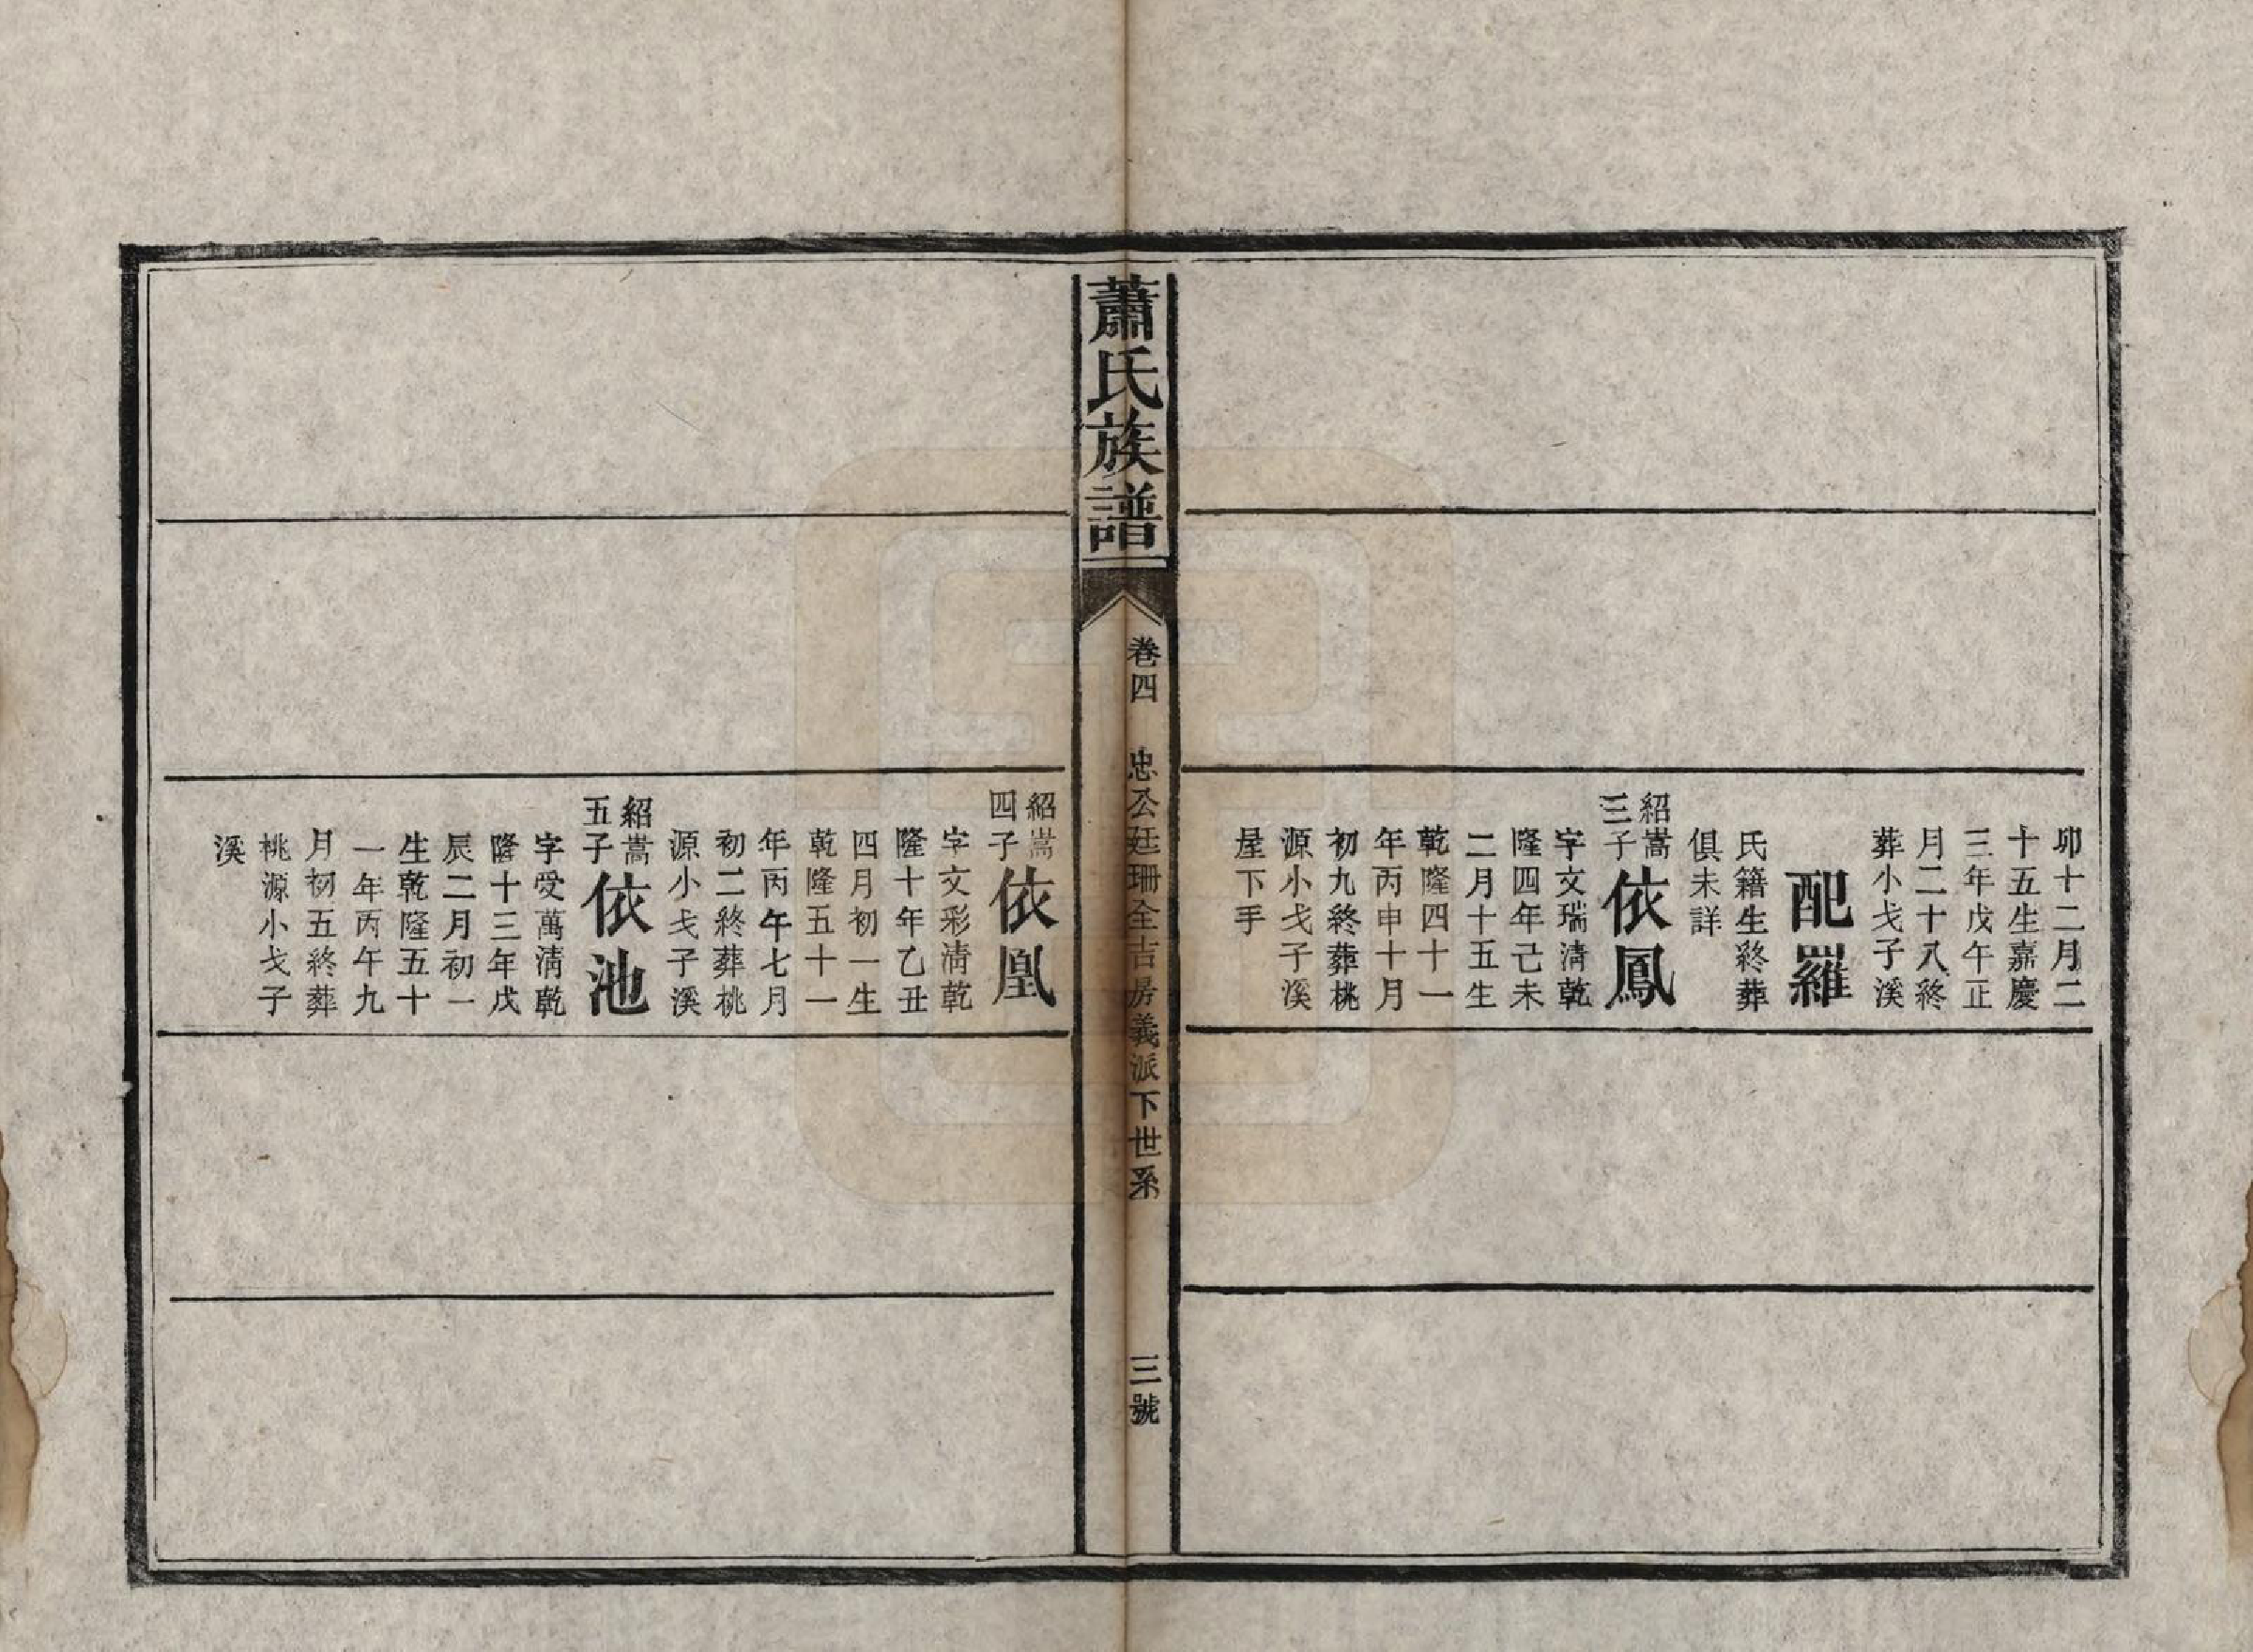 卯十二月二
十五生嘉慶
三年戊午正
月二十八終
葬小戈子溪
配羅
氏籍生終葬
俱未詳
紹嵩
三子
依鳳
字文瑞清乾
隆四年己未
二月十五生
乾隆四十一
年丙申十月
初九終葬桃
源小戈子溪
屋下手
蕭氏族譜
卷四 忠公廷珊全吉房義派下世系 三號
紹嵩
四子
依凰
字文彩清乾
隆十年乙丑
四月初一生
乾隆五十一
年丙午七月
初二終葬桃
源小戈子溪
紹嵩
五子
依池
字受萬清乾
隆十三年戊
辰二月初一
生乾隆五十
一年丙午九
月初五終葬
桃源小戈子
溪